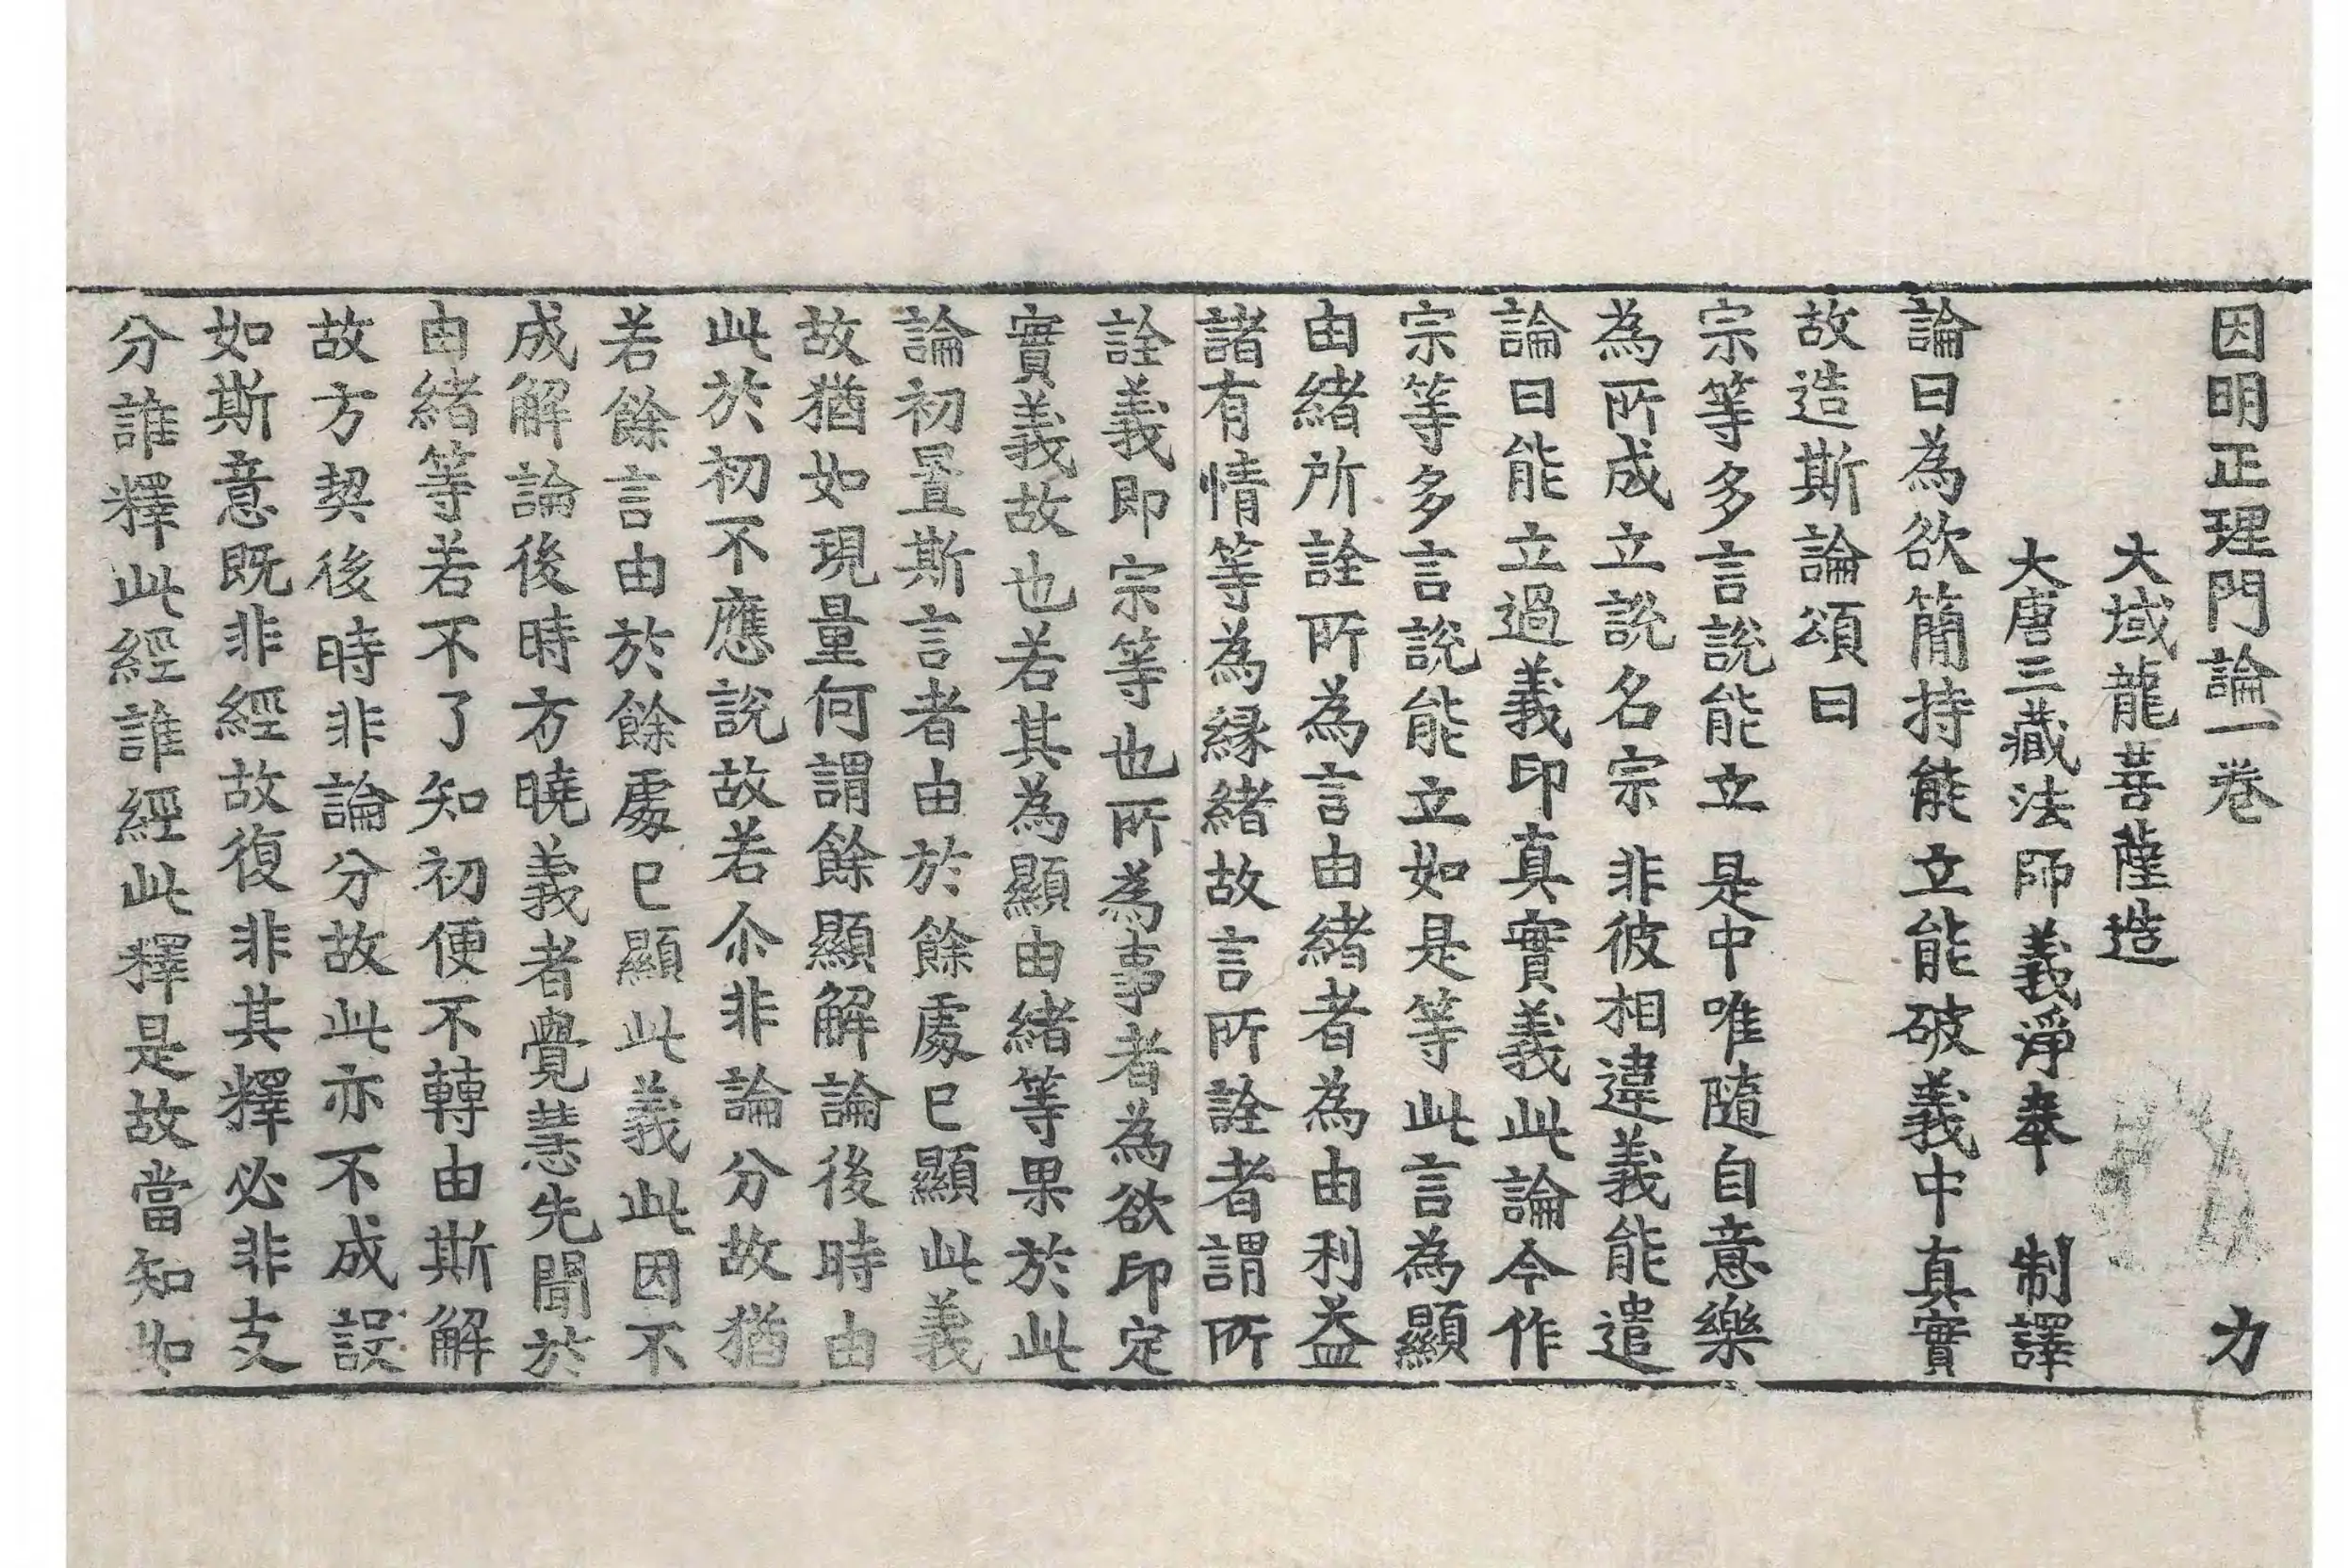 因明正理門論一卷 力
大域龍菩薩造
大唐三藏法師義淨奉 制譯
論曰為欲簡持能立能破義中真實
故造斯論頌曰
宗等多言說能立 是中唯隨自意樂
為所成立說名宗 非彼相違義能遣
論曰能立過義印真實義此論今作
宗等多言說能立如是等此言為顯
由緒所詮所為言由緒者為由利益
諸有情等為緣緒故言所詮者謂所
詮義即宗等也所為事者為欲印定
實義故也若其為顯由緒等果於此
論初置斯言者由於餘處已顯此義
故猶如現量何謂餘顯解論後時由
此於初不應說故若尒非論分故猶
若餘言由於餘處已顯此義此因不
成解論後時方曉義者覺慧先聞於
由緒等若不了知初便不轉由斯解
故方契後時非論分故此亦不成誤
如斯意既非經故復非其釋必非支
分誰釋此經誰經此釋是故當知如